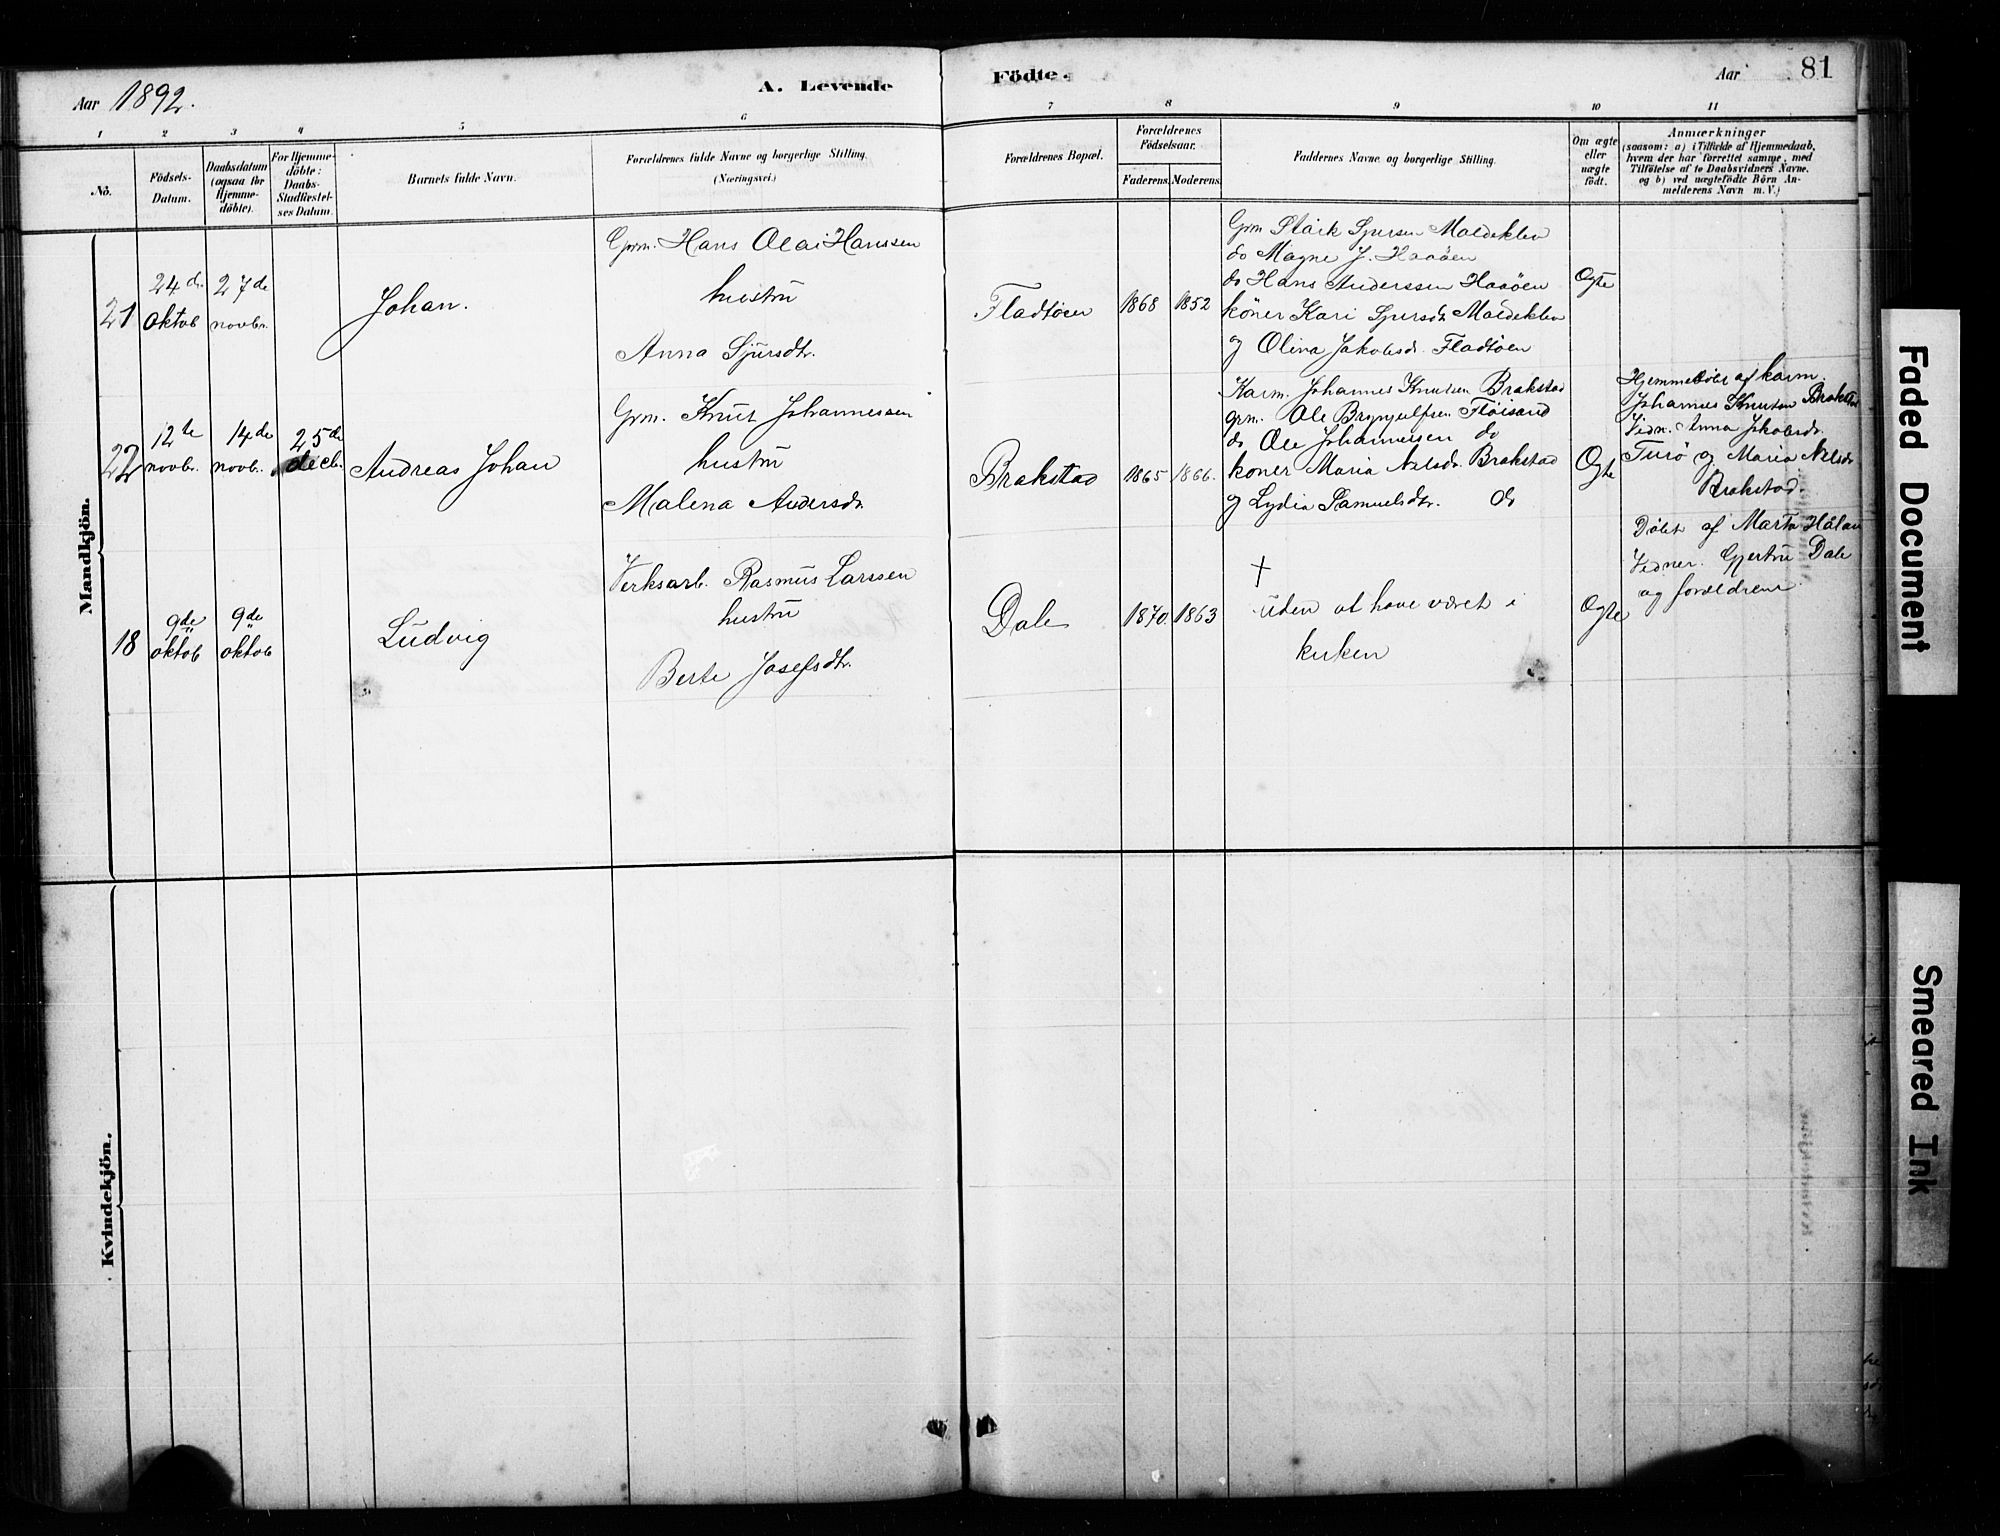 Aar 1892.
A. Levende
Födte.
Aar
81
1
2
3
4
5
6
7
8
9
10
11
No.
Födsels-
Datum.
Daabsdatum
(ogsaa for
Hjemme-
döbte).
For Hjemme-
döbte:
Daabs-
Stadfæstel-
ses Datum.
Barnets fulde Navn.
Forældrenes fulde Navne og borgerlige Stilling.
(Næringsvei.)
Forældrenes Bopæl.
Forældrenes
Födselsaar.
Faderens.
Moderens.
Faddernes Navne og borgerlige Stilling.
Om ægte
eller
uægte
født.
Anmærkninger
(saasom: a) i Tilfælde af Hjemmedaab,
hvem der har forrettet samme, med
Tilföielse af to Daabsvidners Navne,
og b) ved uægtefödte Börn An-
melderens Navn m. V.)
Mandkjön.
21
24 de
oktob
27 de
novbr.
Johan.
Grm. Hans Olai Hanssen
hustru
Anna Sjursdtr.
Fladtøen
1868
1852
Grm Stark Sjursen Moldeklev
do Magne J. Haaøen
do Hans Anderssen Haaøen
koner Kari Sjursdr Moldeklev
og Olina Jakobsdr. Fladtøen
Ogte
22
12te
novbr.
14de
novb.
25de
decb.
Andreas Johan
Grm. Knut Johannessen
hustru
Malena Andersdr.
Brakstad
1865
1866.
Karm. Johannes Knutsen Brakstad
grm. Ole Brynjulfsen Fløisand
do Ole Johannessen do
koner Maria Nilsdr. Brakstad
og Lydia Samuelsdtr. do
Ogte
Hjemmedøbt af karm.
Johannes Knutsen Brakstad
Vidn. Anna Jakobsdr.
Turø og Maria Nilsdr
Brakstad.
18
9de
oktob
9de
oktob
Ludvig
Verksarb. Rasmus Larssen
hustru
Berte Josefsdtr.
Dale
1870.
1863
†
uden at have været i
kirken
Ogte
Døbt af Marta Hålan
Vidner. Gjertru Dale
og forældrene
Kvindekjön.
Faded Document
Smeared Ink